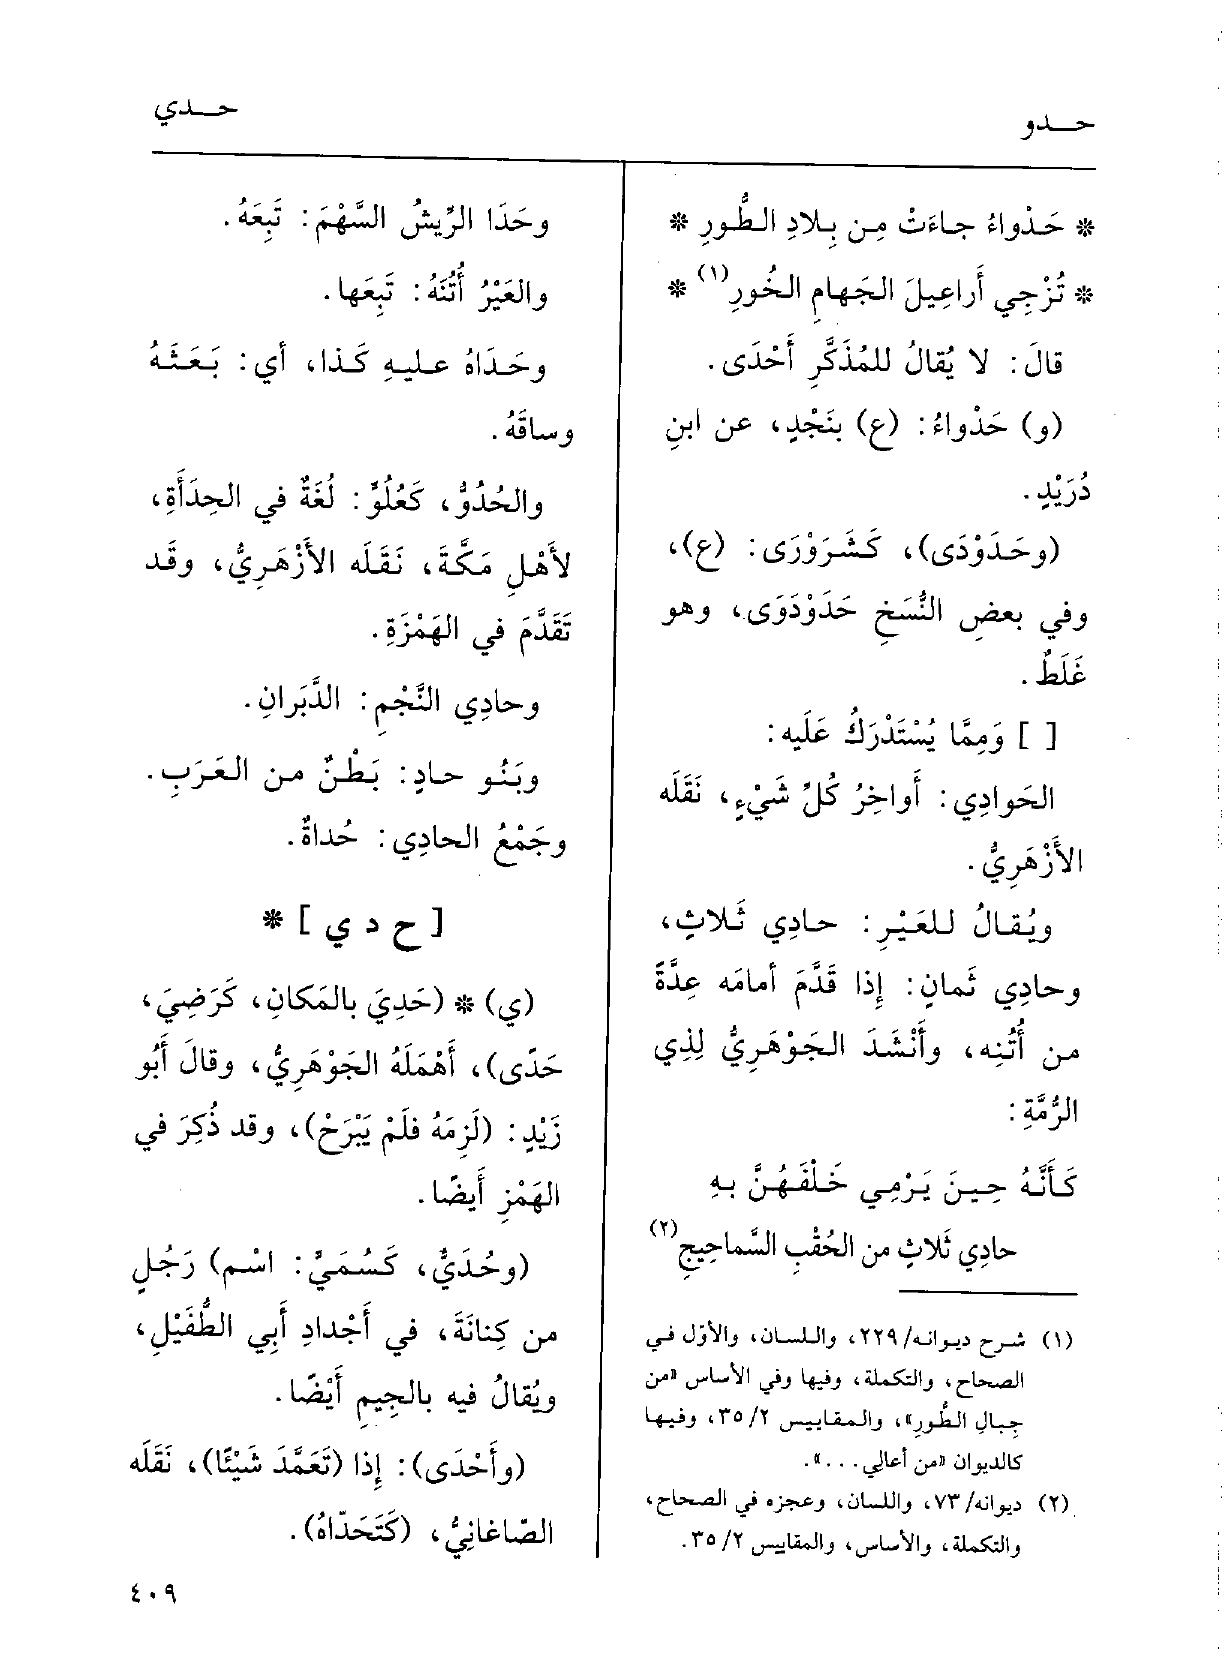 حـدو
حـدي
* حَدْواءُ جاءَتْ مِن بِلادِ الطُّورِ *
* تُزْجِي أَراعِيلَ الجَهامِ الخُورِ(١) *
قالَ: لا يُقالُ للمُذَكَّرِ أَحْدَى.
(و) حَدْواءُ: (ع) بنَجْدٍ، عن ابنِ
دُرَيْدٍ.
(وحَدَوْدَى)، كَشَرَوْرَى: (ع)،
وفي بعضِ النُّسَخِ حَدَوْدَوَى، وهو
غَلَطٌ.
[ ] وَمِمَّا يُسْتَدْرَكُ عَلَيه:
الحَوادِي: أَواخِرُ كُلِّ شَيْءٍ، نَقَلَه
الأَزْهَرِيُّ.
ويُقالُ للعَيْرِ: حادِي ثَلاثٍ،
وحادِي ثَمانٍ: إِذا قَدَّمَ أمامَه عِدَّةً
من أُتُنِه، وأَنْشَدَ الجَوْهَرِيُّ لِذِي
الرُّمَّةِ:
كَأَنَّهُ حِينَ يَرْمِي خَلْفَهُنَّ بهِ
حادِي ثَلاثٍ من الحُقْبِ السَّماحِيجِ(٢)
(١) شرح ديوانه/٢٢٩، واللسان، والأوّل في
الصحاح، والتكملة، وفيها وفي الأساس «من
جِبالِ الطُّورِ»، والمقاييس ٣٥/٢، وفيها
كالديوان «من أعالِي...».
(٢) ديوانه/٧٣، واللسان، وعجزه في الصحاح،
والتكملة، والأساس، والمقاييس ٣٥/٢.
وحَدَا الرِّيشُ السَّهْمَ: تَبِعَهُ.
والعَيْرُ أُتُنَهُ: تَبِعَها.
وحَدَاهُ عليهِ كَذا، أي: بَعَثَهُ
وساقَهُ.
والحُدُوُّ، كَعُلُوٍّ: لُغَةٌ في الحِدَأَةِ،
لأَهْلِ مَكَّةَ، نَقَلَه الأَزْهَرِيُّ، وقَد
تَقَدَّمَ في الهَمْزَةِ.
وحادِي النَّجْمِ: الدَّبَرانِ.
وبَنُو حادٍ: بَطْنٌ من العَرَبِ.
وجَمْعُ الحادِي: حُداةٌ.
[ ح د ي ] *
(ي) * (حَدِيَ بالمَكانِ، كَرَضِيَ،
حَدًى)، أَهْمَلَهُ الجَوْهَرِيُّ، وقالَ أَبُو
زَيْدٍ: (لَزِمَهُ فلَمْ يَبْرَحْ)، وقد ذُكِرَ في
الهَمْزِ أَيضًا.
(وحُدَيٌّ، كَسُمَيٍّ: اسْم) رَجُلٍ
من كِنانَةَ، في أَجْدادِ أَبِي الطُّفَيْلِ،
ويُقالُ فيه بالجِيمِ أَيْضًا.
(وأَحْدَى): إِذا (تَعَمَّدَ شَيْئًا)، نَقَلَه
الصّاغانِيُّ، (كَتَحَدّاهُ).
٤٠٩